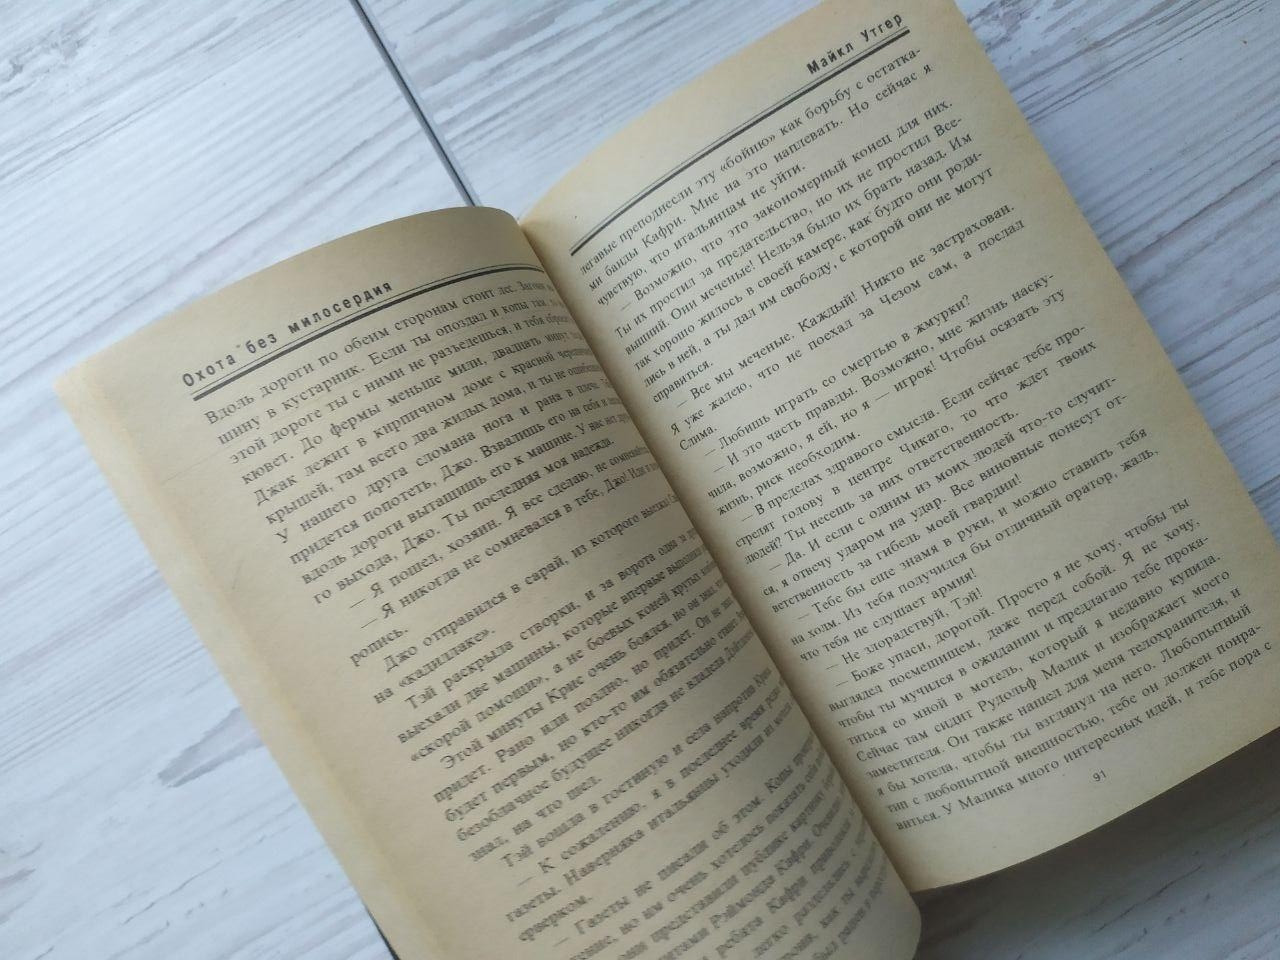 Охота без милосердия
Вдоль дороги по обеим сторонам стоит лес. Загони
шину в кустарник. Если ты опоздал и копы там, то
этой дороге ты с ними не разъедешься, и тебя
кювет. До фермы меньше мили, двадцать минут
Джак лежит в кирпичном доме с красной
крышей, там всего два жилых дома, и ты не
У нашего друга сломана нога и рана в плече.
придется попотеть, Джо. Взвалишь его на себя и
вдоль дороги вытащишь его к машине. У нас нет
го выхода, Джо. Ты последняя моя надежда.
— Я пошел, хозяин. Я все сделаю, не
— Я никогда не сомневался в тебе, Джо! Иди и
ропись.
Джо отправился в сарай, из которого
на «кадиллаке».
Тэй раскрыла створки, и за ворота одна за
выехали две машины, которые впервые выполняли
«скорой помощи», а не боевых коней крутых
Этой минуты Крис очень боялся, но он знал, что
придет. Рано или поздно, но придет. Он не
будет первым, но кто-то им обязательно станет.
безоблачное будущее никогда не владела
знал, на что шел.
Тэй вошла в гостиную и села напротив Криса.
— К сожалению, я в последнее время редко
газеты. Наверняка итальянцы уходили из
серверком.
— Газеты не писали об этом. Копы
ление, но им очень хотелось показать себя
они представили публике картину
Раймонда Кафри.
ребята Кафри приволокли
легко разделались с
как ты
был ранен
Майкл Утгер
легавые преподнесли эту «бойню» как борьбу с остатка-
ми банды Кафри. Мне на это наплевать. Но сейчас я
чувствую, что итальянцам не уйти.
— Возможно, что это закономерный конец для них.
Ты их простил за предательство, но их не простил Все-
вышний. Они меченые! Нельзя было их брать назад. Им
так хорошо жилось в своей камере, как будто они роди-
лись в ней, а ты дал им свободу, с которой они не могут
справиться.
— Все мы меченые. Каждый! Никто не застрахован.
Я уже жалею, что не поехал за Чезом сам, а послал
Слима.
— Любишь играть со смертью в жмурки?
— И это часть правды. Возможно, мне жизнь наску-
чила, возможно, я ей, но я — игрок! Чтобы осязать эту
жизнь, риск необходим.
— В пределах здравого смысла. Если сейчас тебе про-
стрелят голову в центре Чикаго, то что ждет твоих
людей? Ты несешь за них ответственность.
— Да. И если с одним из моих людей что-то случит-
ся, я отвечу ударом на удар. Все виновные понесут от-
ветственность за гибель моей гвардии!
— Тебе бы еще знамя в руки, и можно ставить тебя
на холм. Из тебя получился бы отличный оратор, жаль,
что тебя не слушает армия!
— Не злорадствуй, Тэй!
— Боже упаси, дорогой. Просто я не хочу, чтобы ты
выглядел посмешищем, даже перед собой. Я не хочу,
чтобы ты мучился в ожидании и предлагаю тебе прока-
титься со мной в мотель, который я недавно купила.
Сейчас там сидит Рудольф Малик и изображает моего
заместителя. Он также нашел для меня телохранителя, и
я бы хотела, чтобы ты взглянул на него. Любопытный
тип с любопытной внешностью, тебе он должен понра-
виться. У Малика много интересных идей, и тебе пора с
91